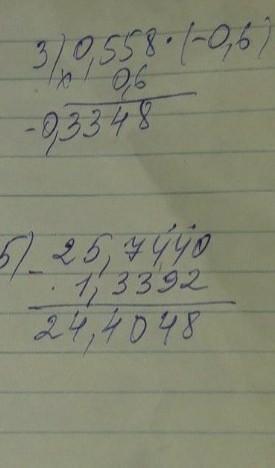 3) 0,558 · (-0,6)
x 0,6
-0,3348
5) 25,7440
- 1,3392
24,4048